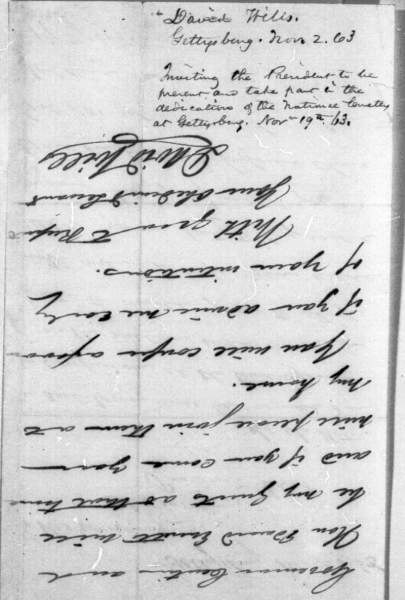 David Wills.
Gettysburg. Nov 2. 63
Inviting the President to be
present and take part in the
dedication of the National Cemetery
at Gettysburg. Novr 19th 63.
Governor Curtin and
Hon Edward Everett will
be my guests at that time
and if you come you
will please join them at
my house.
You will confer a favor
if you advise me early
of your intentions.
With great Respect
Your Obedient Servant
David Wills